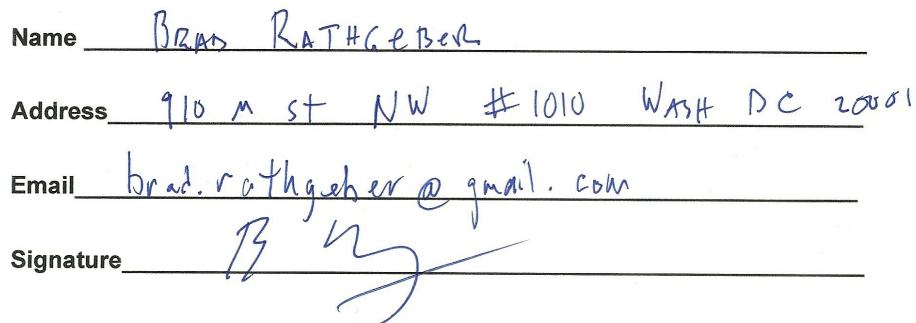 Name BRAD RATHGEBER
Address 910 M St NW #1010 WASH DC 20001
Email brad.rathgeber@gmail.com
Signature